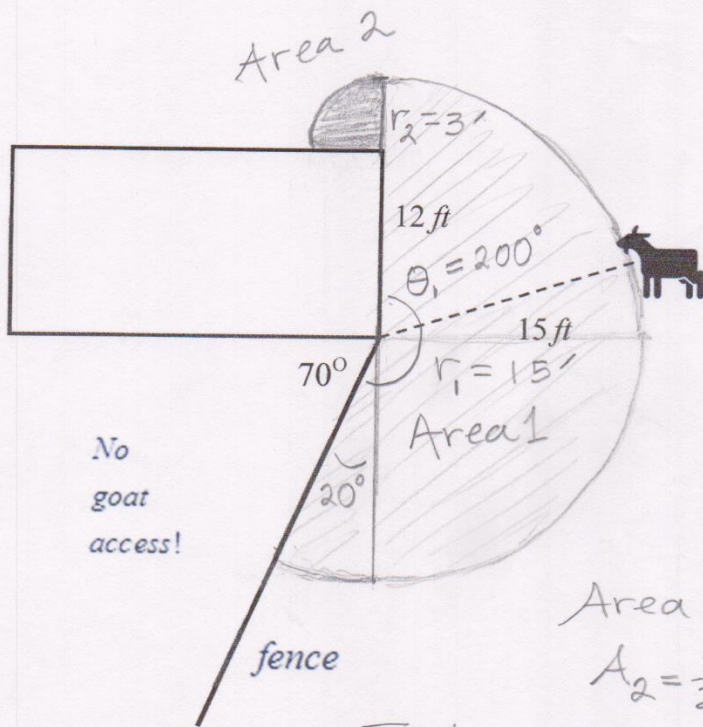 Area 2
r₂ = 3′
12 ft
θ₁ = 200°
15 ft
70°
r₁ = 15′
Area 1
No
goat
access!
20°
Area
fence
A₂ =